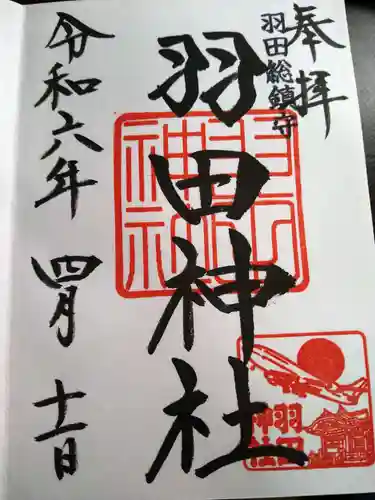 奉拝
羽田総鎮守
羽田神社
令和六年
四月
十一日
羽田神社
羽田
神社